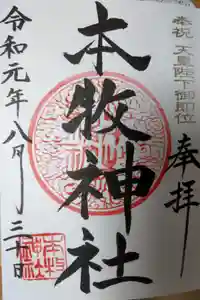 奉祝 天皇陛下御即位
奉拝
本牧神社
令和元年八月三十日